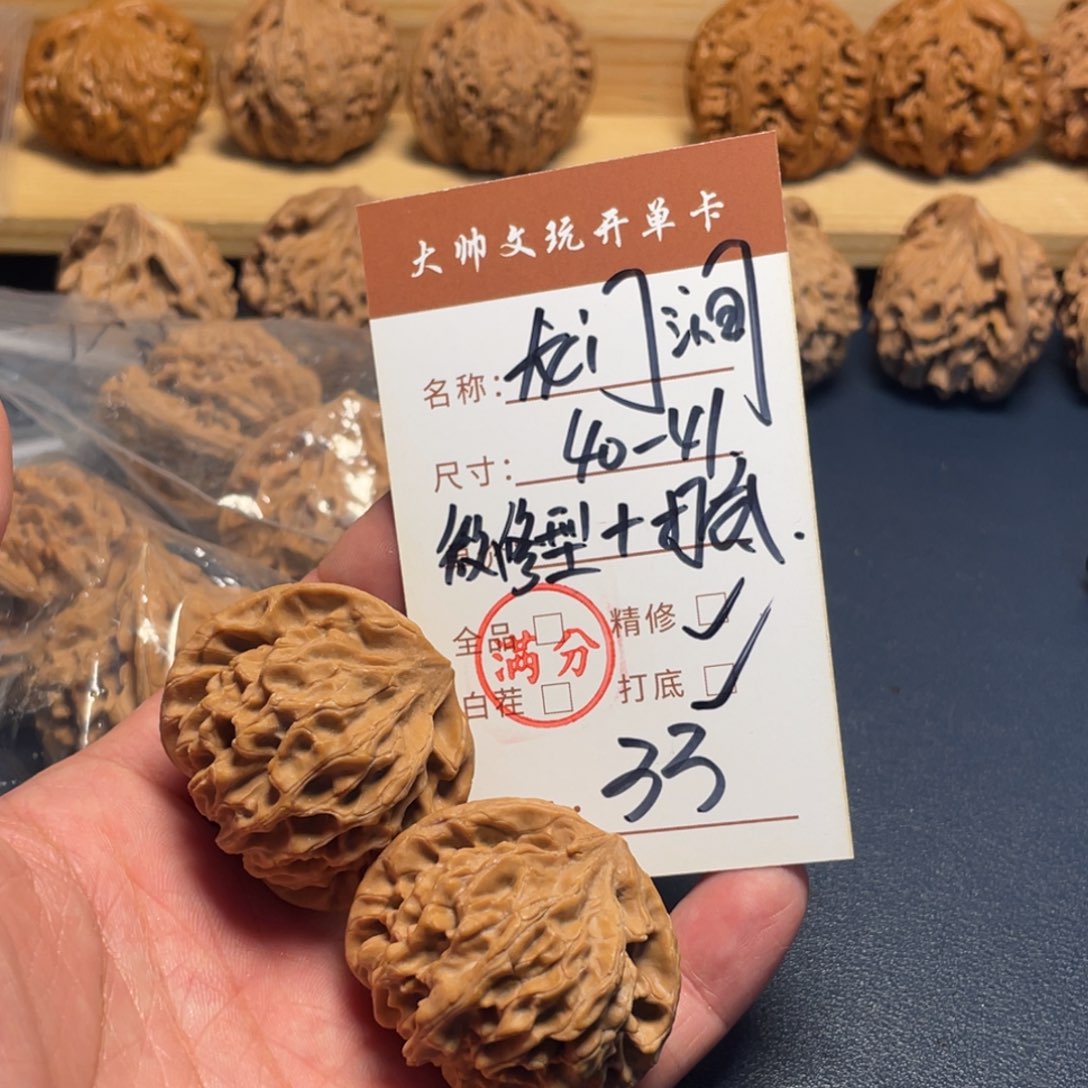 大帅文玩开单卡
名称：龙门涧
尺寸：40-41
微修型+打底.
全品□ 精修□✓
满分
白茬□ 打底□✓
33